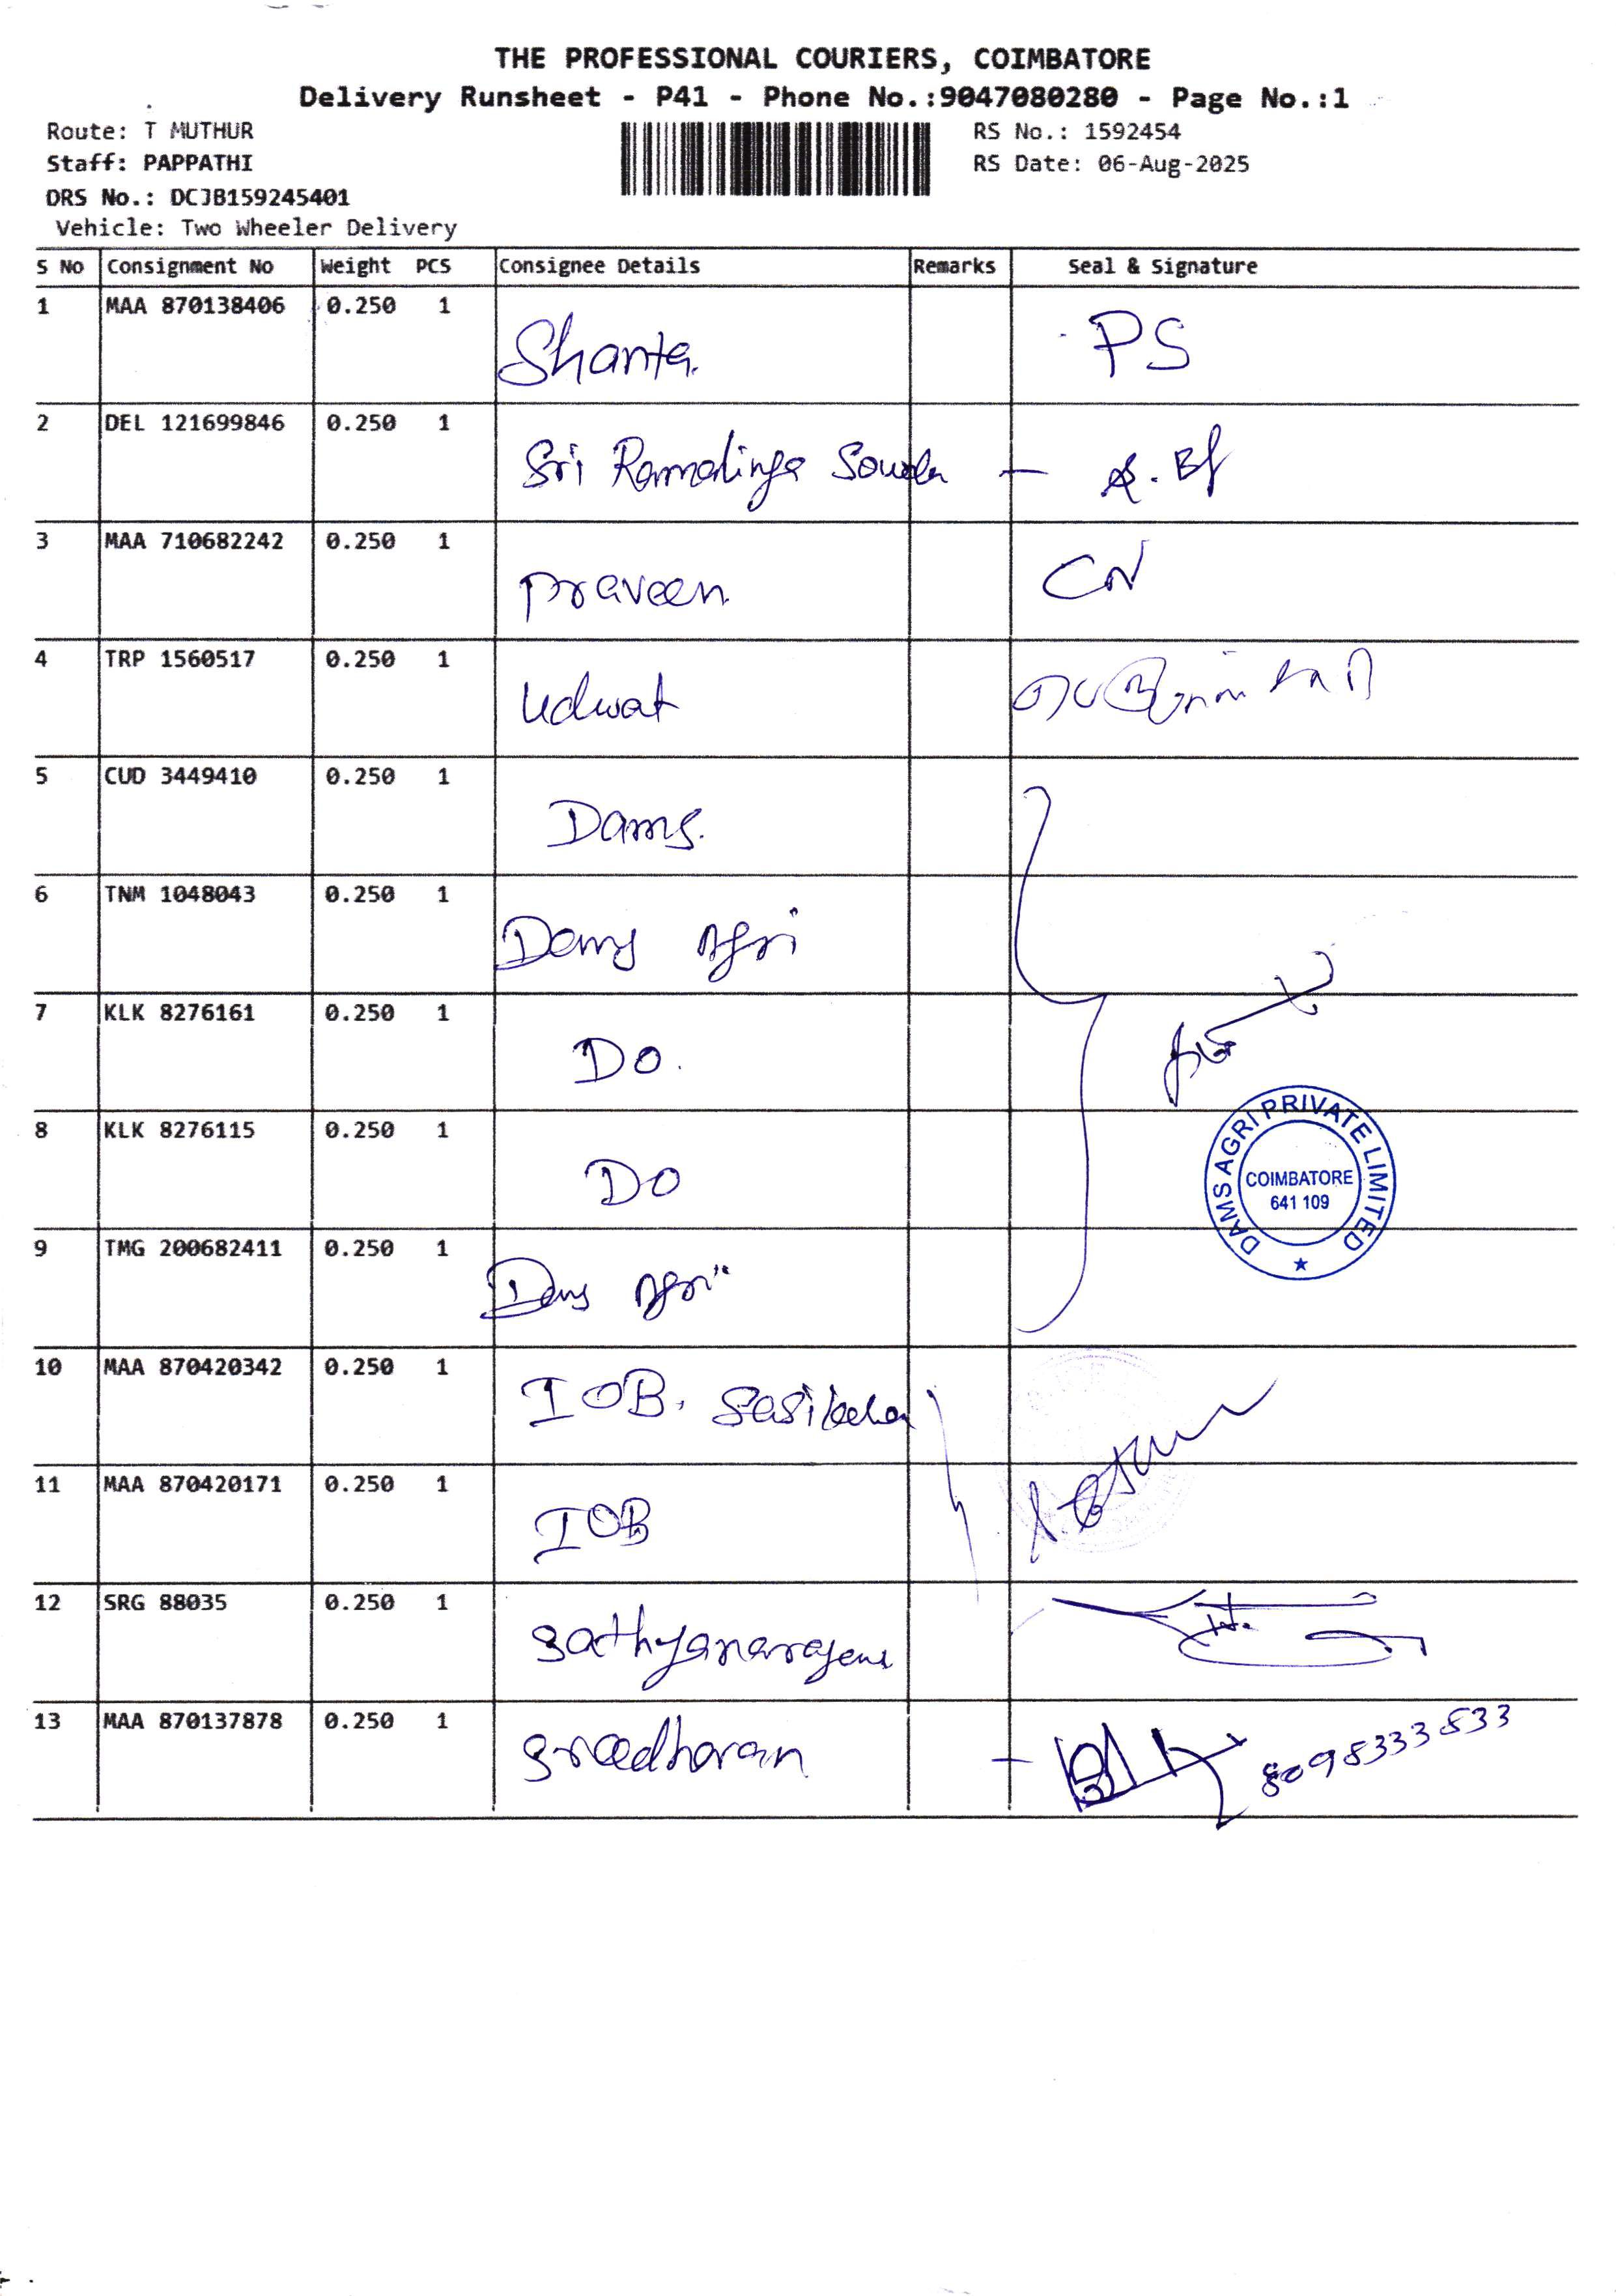 THE PROFESSIONAL COURIERS, COIMBATORE
Delivery Runsheet - P41 - Phone No.:9047080280 - Page No.:1
Route: T MUTHUR
RS No.: 1592454
Staff: PAPPATHI
RS Date: 06-Aug-2025
DRS No.: DCJB159245401
Vehicle: Two Wheeler Delivery
S No Consignment No Weight PCS Consignee Details Remarks Seal & Signature
1 MAA 870138406 0.250 1 Shanta. PS
2 DEL 121699846 0.250 1 Sri Ramalinga
3 MAA 710682242 0.250 1 Praveen. CN
4 TRP 1560517 0.250 1 Udwat
5 CUD 3449410 0.250 1 Dams.
6 TNM 1048043 0.250 1 Dams Agri
7 KLK 8276161 0.250 1 DO.
8 KLK 8276115 0.250 1 DO
DAMS AGRI PRIVATE LIMITED
COIMBATORE
641 109
9 TMG 200682411 0.250 1 Dams Agri
10 MAA 870420342 0.250 1 IOB.
11 MAA 870420171 0.250 1 IOB
12 SRG 88035 0.250 1 Sathyanarayana
13 MAA 870137878 0.250 1 Sreedharan 8098333533